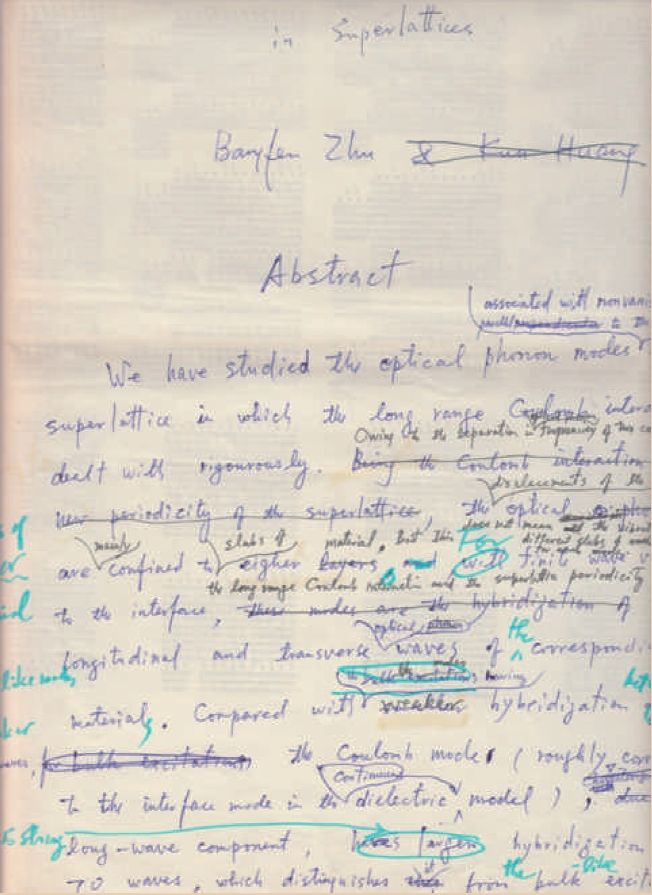 in Superlattices
Bangfen Zhu & Kun Huang
Abstract
associated with nonvani
to the
We have studied the optical phonon modes
superlattice in which the long range Coulomb intera
Owing to the separation in frequency of two co
dealt with rigourously. Being the Coulomb interaction
dislacements of the
new periodicity of the superlattice, the optical
does not mean all the vibrat
mainly slabs of material, But this For different slabs of
are confined to eigher layers and with finit wave v
the long range Coulomb interaction and the superlattice periodicity
to the interface, these modes are the hybridization of
optical phonon
longitudinal and transverse waves of the correspondi
like modes the bulk excitations having
materials. Compared with weaker hybridization
the bulk excitations the Coulomb modes (roughly corr
continuum
to the interface mode in the dielectric model), due
is strong long-wave component, has larger hybridization
it the -like
TO waves, which distinguishes from bulk excit